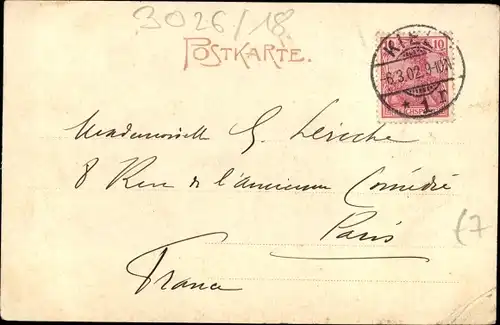 3026/18
POSTKARTE.
KIEL
10
-6.3.02.9-10V.
* 1
Mademoiselle G. Leriche
8 Rue de l'ancienne Comédie
Paris
France
£7